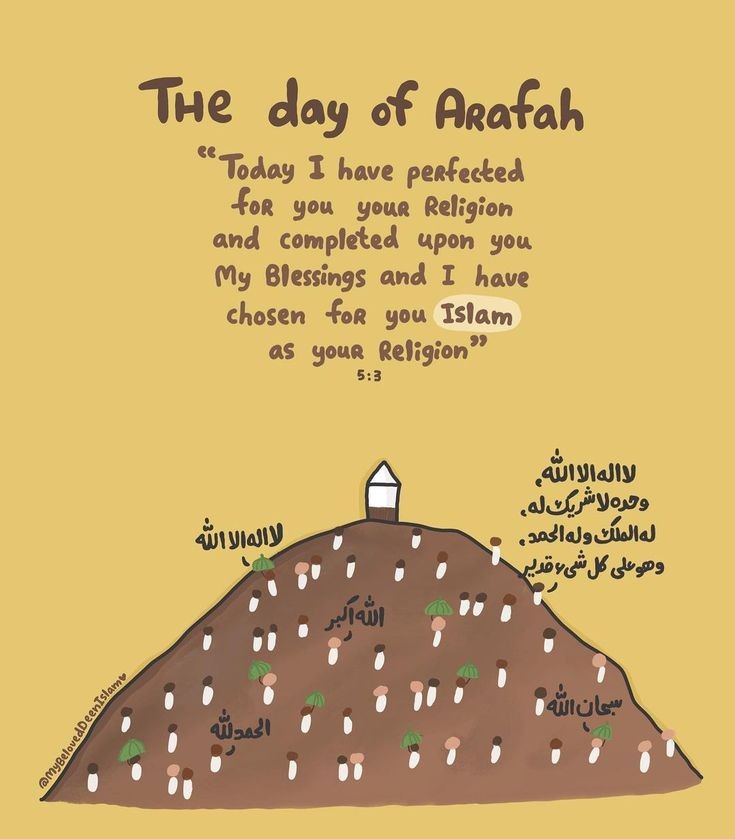 The day of Arafah
“Today I have perfected
for you your Religion
and completed upon you
My Blessings and I have
chosen for you Islam
as your Religion”
5:3
لا اله الا الله
لا اله الا الله،
وحده لا شريك له،
له الملك وله الحمد،
وهو على كل شيء قدير
الله أكبر
سبحان الله
الحمد لله
@MyBelovedDeenIslam♥